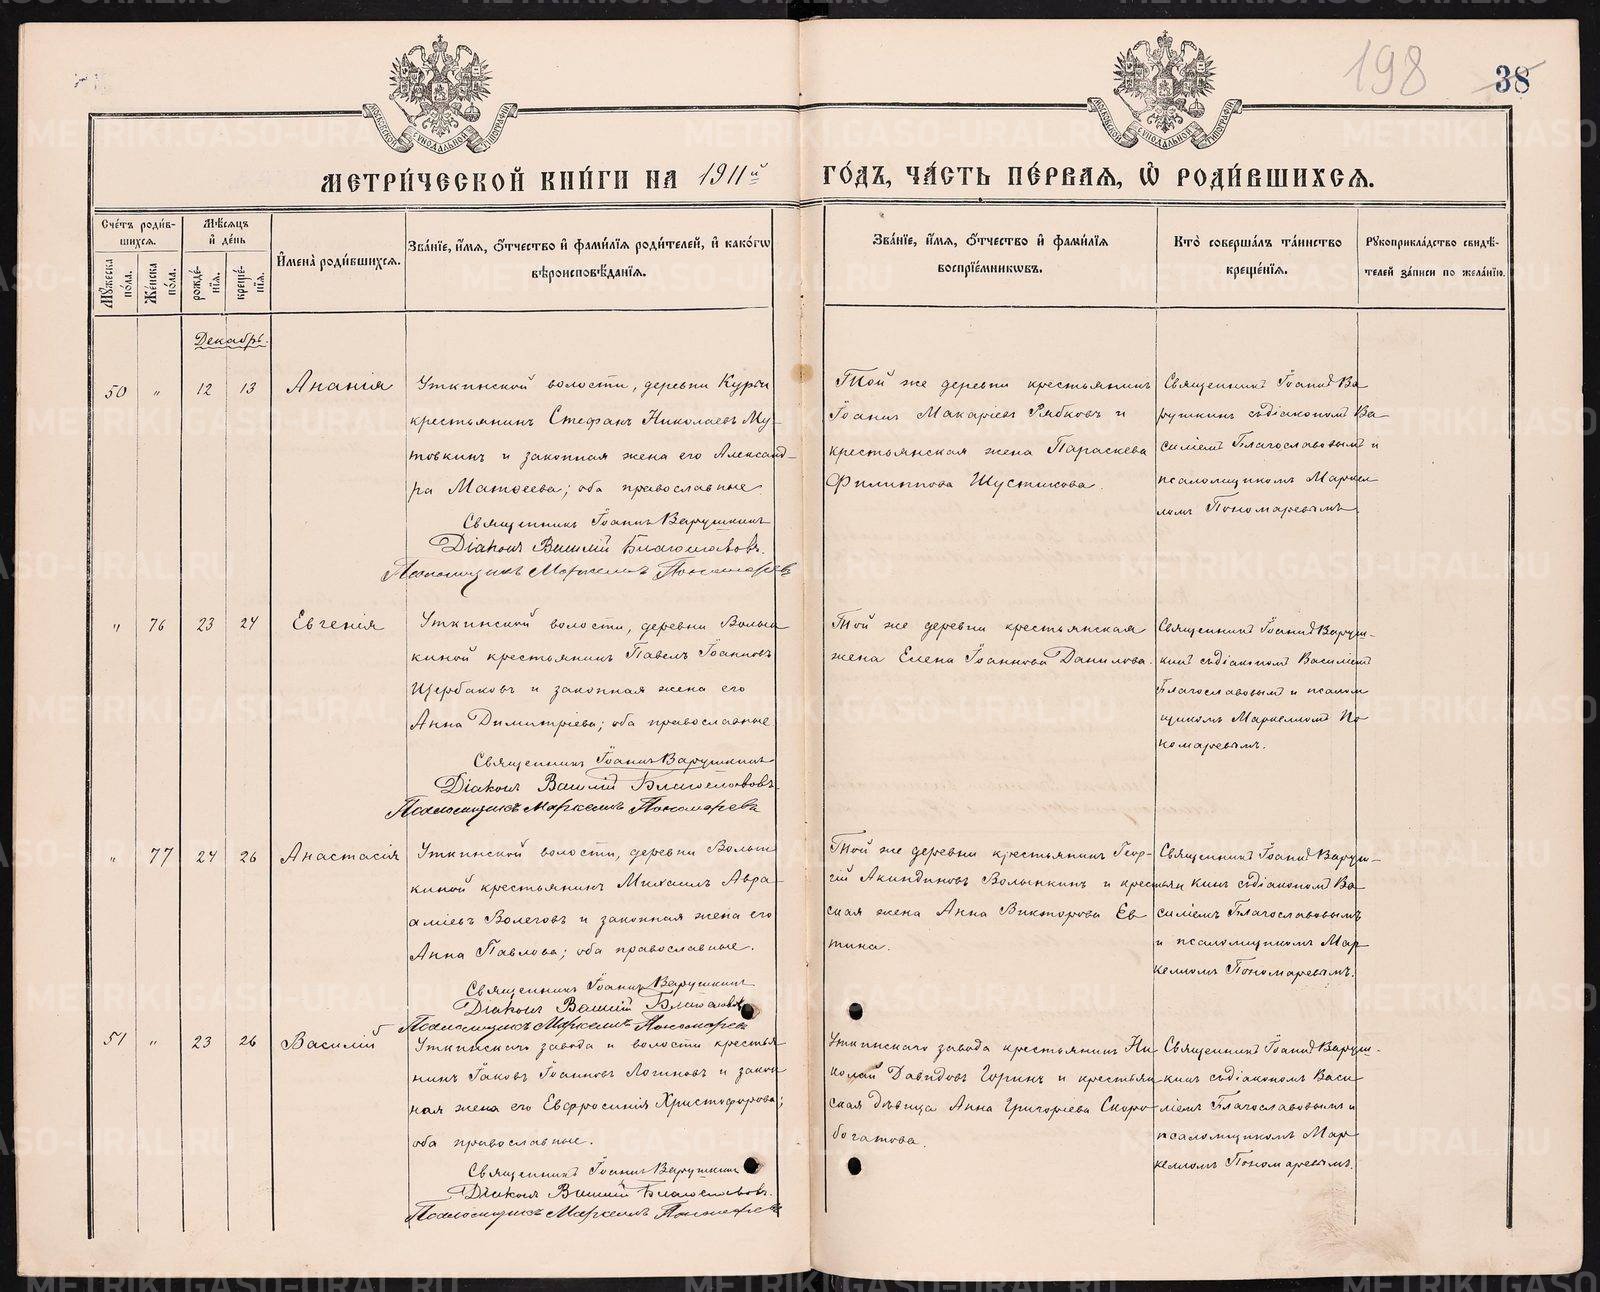 198
38
МЕТРИ́ЧЕСКОЙ КНИ́ГИ НА 1911й ГО́ДЪ, ЧА́СТЬ ПЕ́РВАЯ, Ѡ РОДИ́ВШИХСЯ.
Сче́тъ роди́в-
шихся.
Му́жеска по́ла.
Же́нска по́ла.
Мѣ́сяцъ
и҆ де́нь
рожде́-
нїѧ.
креще́-
нїѧ.
И҆мена̀ роди́вшихся.
Зва́нїе, и҆́мя, ѻ҆́тчество и҆ фамі́лїѧ роди́телей, и҆ како́гѡ
вѣроисповѣ́данїѧ.
Зва́нїе, и҆́мя, ѻ҆́тчество и҆ фамі́лїѧ
воспрїе́мникѡвъ.
Кто̀ соверша́лъ та́инство
креще́нїѧ.
Рꙋкоприкла́дство свидѣ́-
телей за́писи по жела́нїю.
Декабрь.
50 " 12 13 Ананія
Уткинской волости, деревни Курьи
крестьянинъ Стефанъ Николаевъ Му-
товкинъ и законная жена его Александ-
ра Матѳеева; оба православные
Священникъ Іоаннъ Варушкинъ
Діаконъ Василій Благославовъ.
Псаломщикъ Маркеллъ Пономаревъ
Той же деревни крестьянинъ
Іоаннъ Макаріевъ Рябковъ и
крестьянская жена Параскева
Филиппова Шустикова.
Священникъ Іоаннъ Ва-
рушкинъ съ діакономъ Ва-
силіемъ Благославовымъ и
псаломщикомъ Маркел
ломъ Пономаревымъ
" 76 23 24 Евгенія
Уткинской волости, деревни Волын
киной крестьянинъ Павелъ Іоанновъ
Щербаковъ и законная жена его
Анна Димитріева; оба православные
Священникъ Іоаннъ Варушкинъ
Діаконъ Василій Благославовъ
Псаломщикъ Маркеллъ Пономаревъ
Той же деревни крестьянская
жена Елена Іоаннова Данилова.
Священникъ Іоаннъ Варуш-
кинъ съ діакономъ Василіемъ
Благославовымъ и псалом
щикомъ Маркелломъ По
номаревымъ.
" 77 24 26 Анастасія
Уткинской волости, деревни Волын
киной крестьянинъ Михаилъ Авра-
аміевъ Волеговъ и законная жена его
Анна Павлова; оба православные.
Священникъ Іоаннъ Варушкинъ
Діаконъ Василій Благославовъ
Псаломщикъ Маркеллъ Пономаревъ
Той же деревни крестьянинъ Геор-
гій Акиндиновъ Волынкинъ и крестьян
ская жена Анна Викторова Ев
тина.
Священникъ Іоаннъ Варуш-
кинъ съ діакономъ Ва-
силіемъ Благославовымъ
и псаломщикомъ Мар
келломъ Пономаревымъ.
51 " 23 26 Василій
Уткинскаго завода и волости крестья
нинъ Іаковъ Іоанновъ Логиновъ и закон
ная жена его Евфросинія Христофорова;
оба православные.
Священникъ Іоаннъ Варушкинъ
Діаконъ Василій Благославовъ.
Псаломщикъ Маркеллъ Пономаревъ
Уткинскаго завода крестьянинъ Ни-
колай Давидовъ Горинъ и крестьян
ская дѣвица Анна Григоріева Скоро-
богатова.
Священникъ Іоаннъ Варуш-
кинъ съ діакономъ Васи
ліемъ Благославовымъ и
псаломщикомъ Мар
келломъ Пономаревымъ.